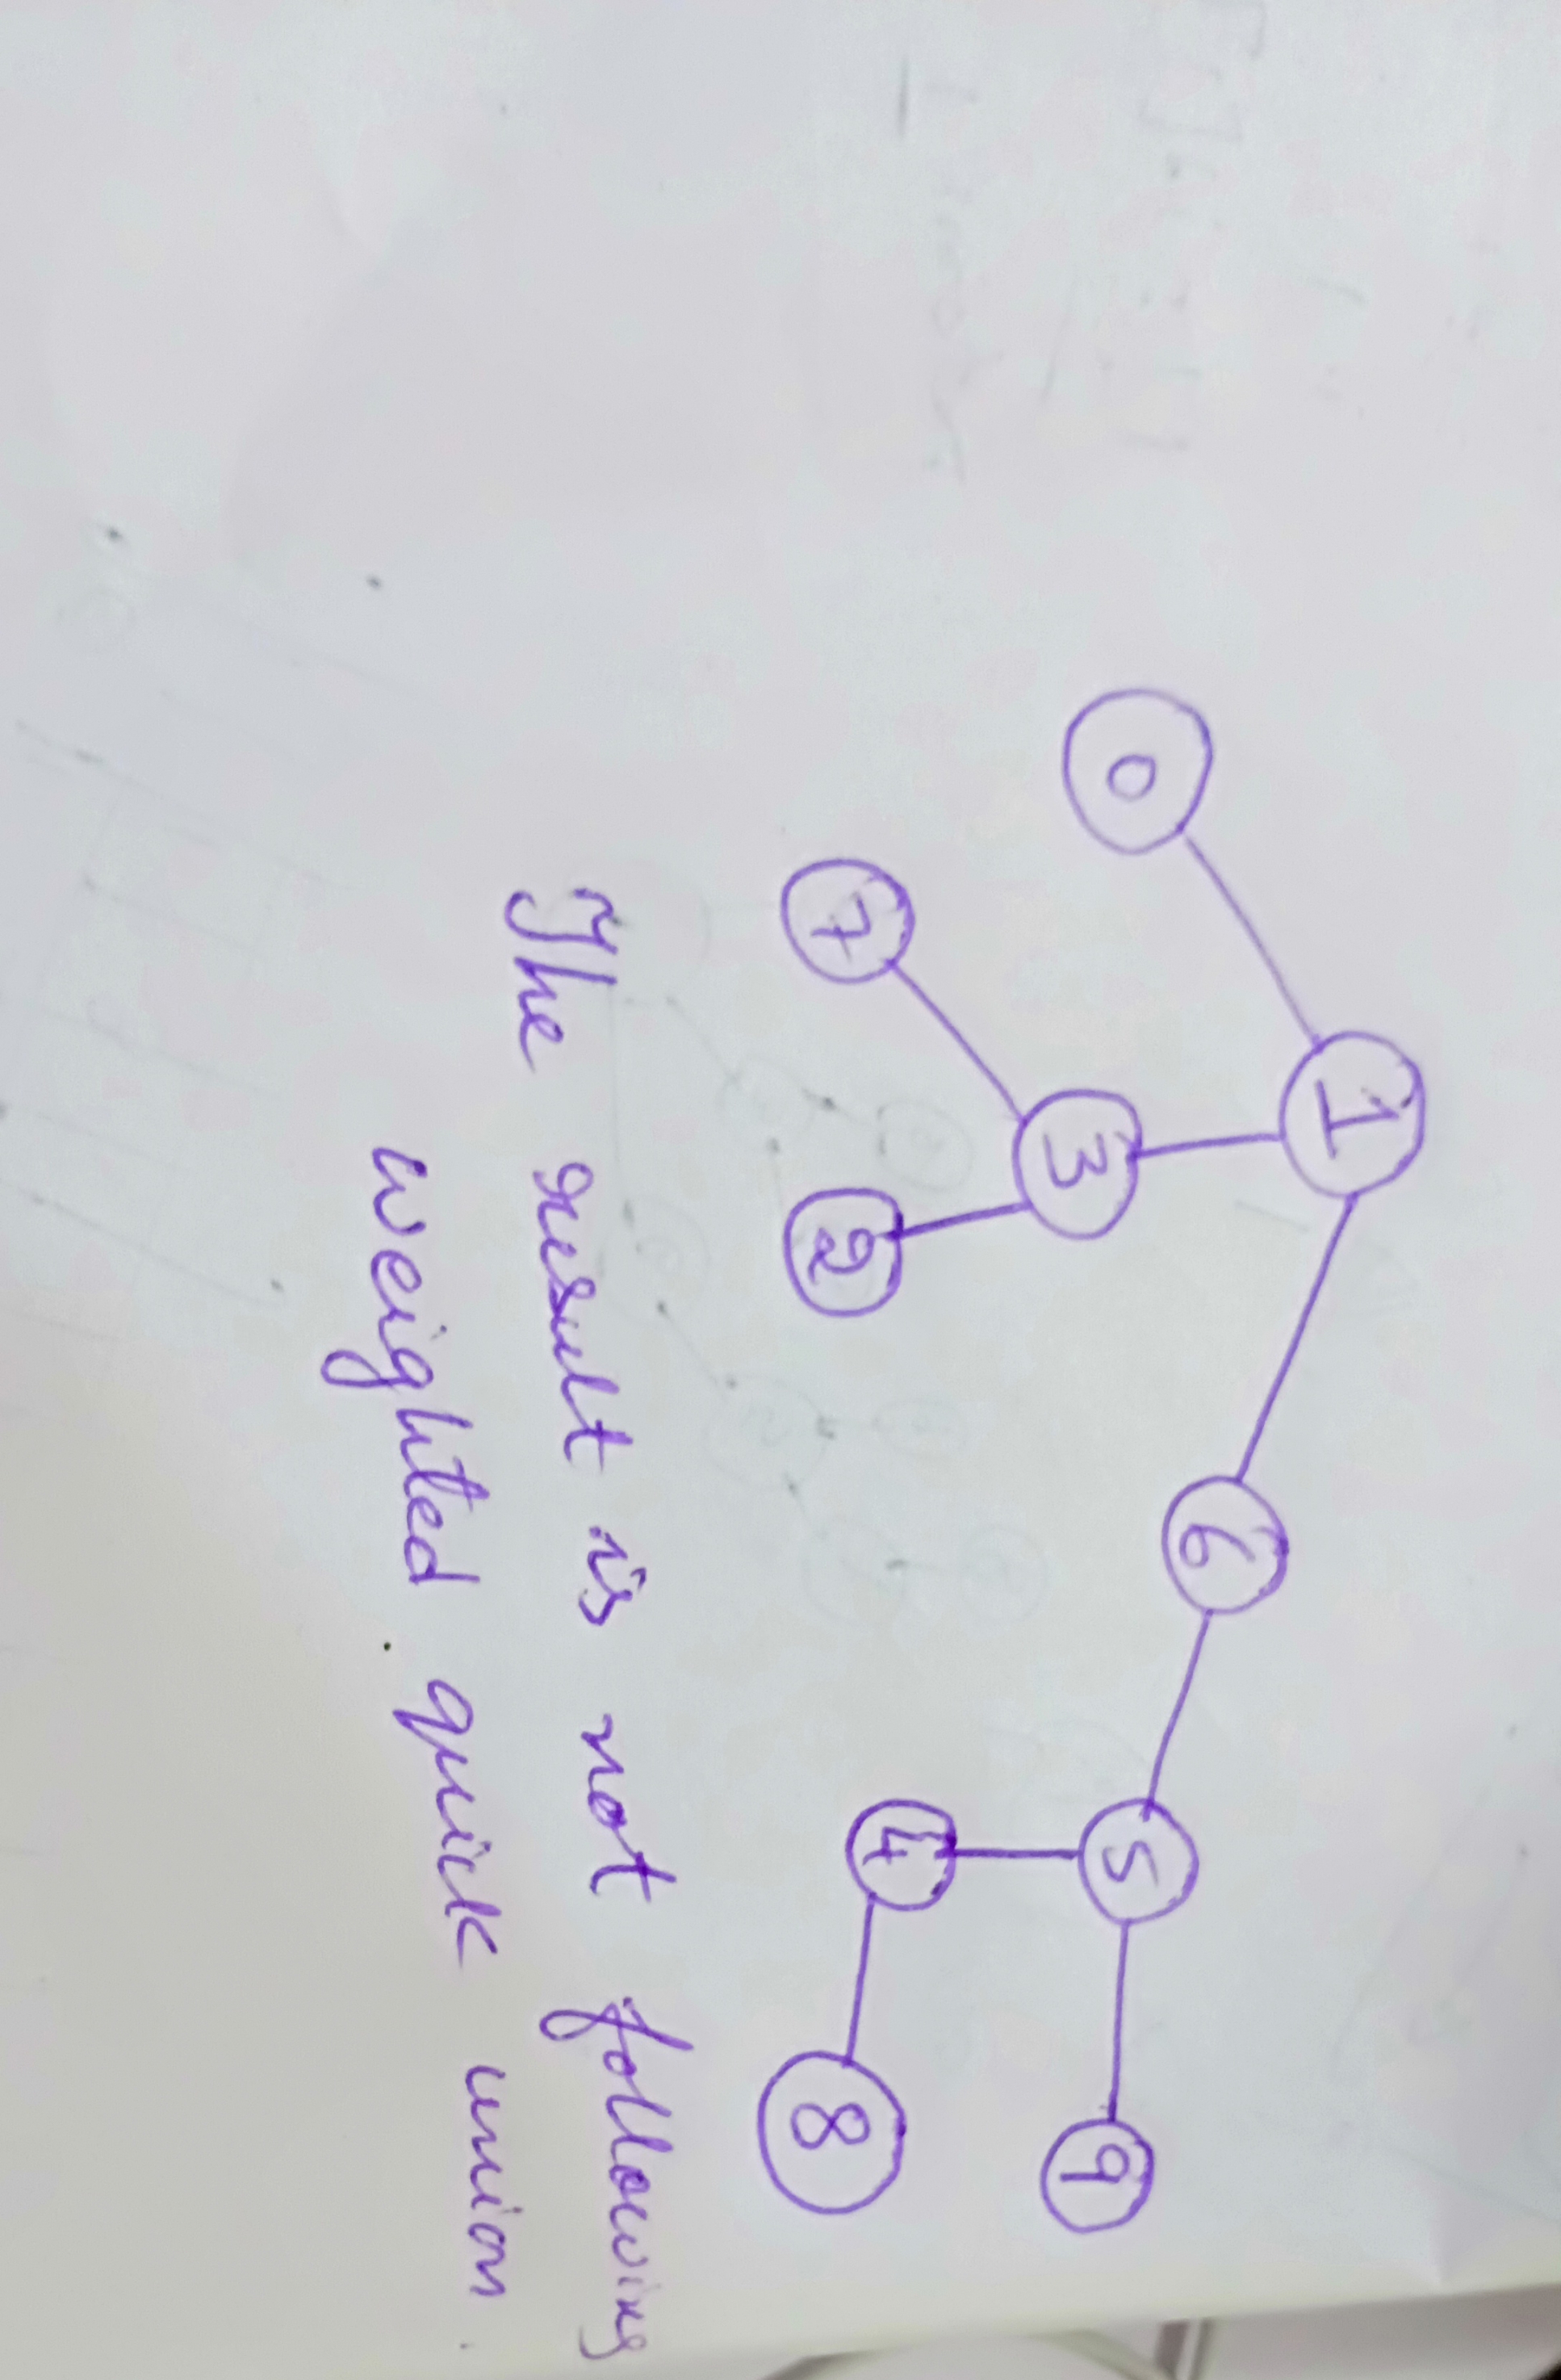 1
0
6
3
5
9
7
2
4
8
The result is not following
weighted quick union.